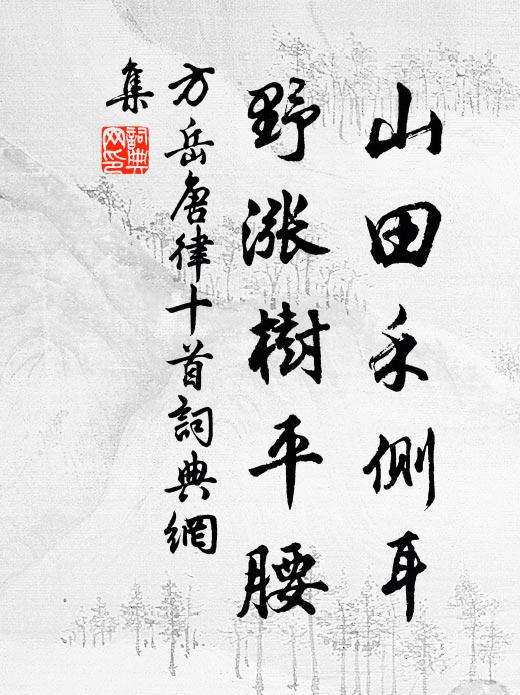 山田禾側耳
野漲樹平腰
方岳唐律十首詞典網
集
詞典網印